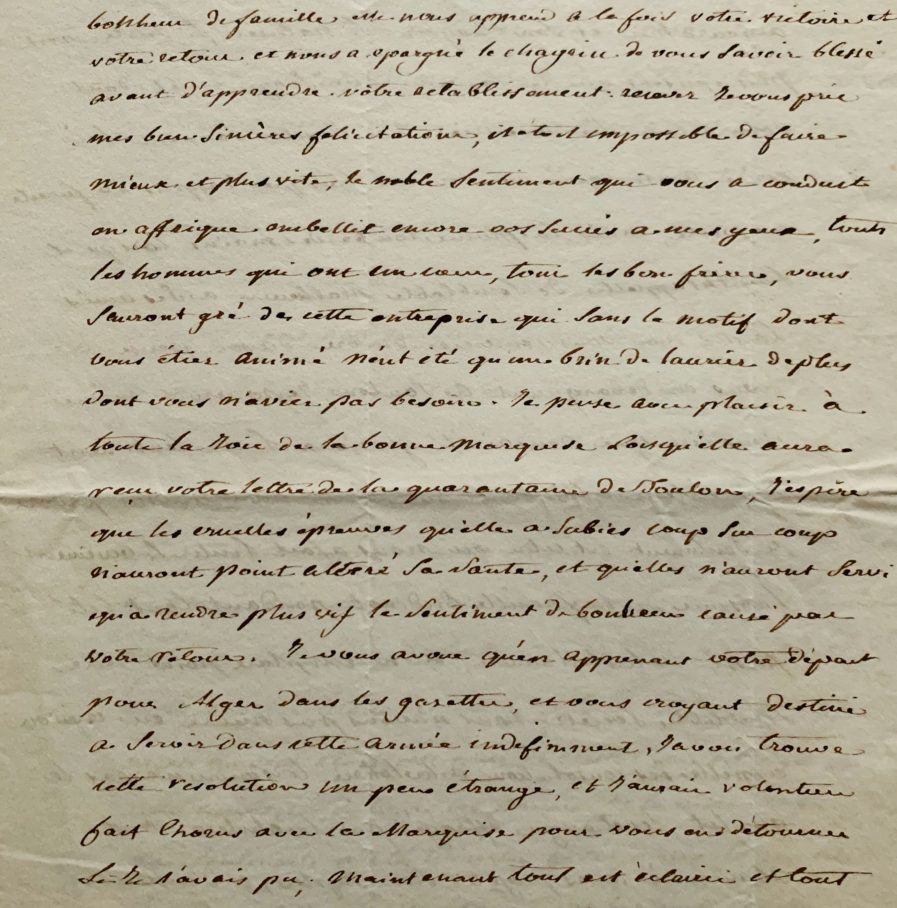 bonheur de famille elle nous apprend a la fois votre victoire et
votre retour et nous a epargné le chagrin de vous savoir blessé
avant d'apprendre votre retablissement : recevez Je vous prie
mes bien sincères felicitations, il étoit impossible de faire
mieux et plus vite, le noble sentiment qui vous a conduit
en affrique embellit encore vos succès a mes yeux, touts
les hommes qui ont un cœur, tous les bon frères, vous
sauront gré de cette entreprise qui sans le motif dont
vous étiez animé n'eut été qu'un brin de laurier de plus
dont vous n'aviez pas besoin. Je pense avec plaisir à
toute la Joie de la bonne Marquise Lorsqu'elle aura
reçu votre lettre de la quarantaine de Toulon, J'espère
que les cruelles épreuves qu'elle a subies coup sur coup
n'auront point altéré sa santé, et qu'elles n'auront servi
qu'a rendre plus vif le sentiment de bonheur causé par
votre retour. Je vous avoue qu'en apprenant votre départ
pour Alger dans les gazettes, et vous croyant destiné
a servir dans cette armée indefiniment, J'avois trouvé
cette resolution un peu étrange, et J'aurais volontiers
fait Chorus avec la Marquise pour vous en détourner
si Je l'avais pu; maintenant tout est éclairci et tout